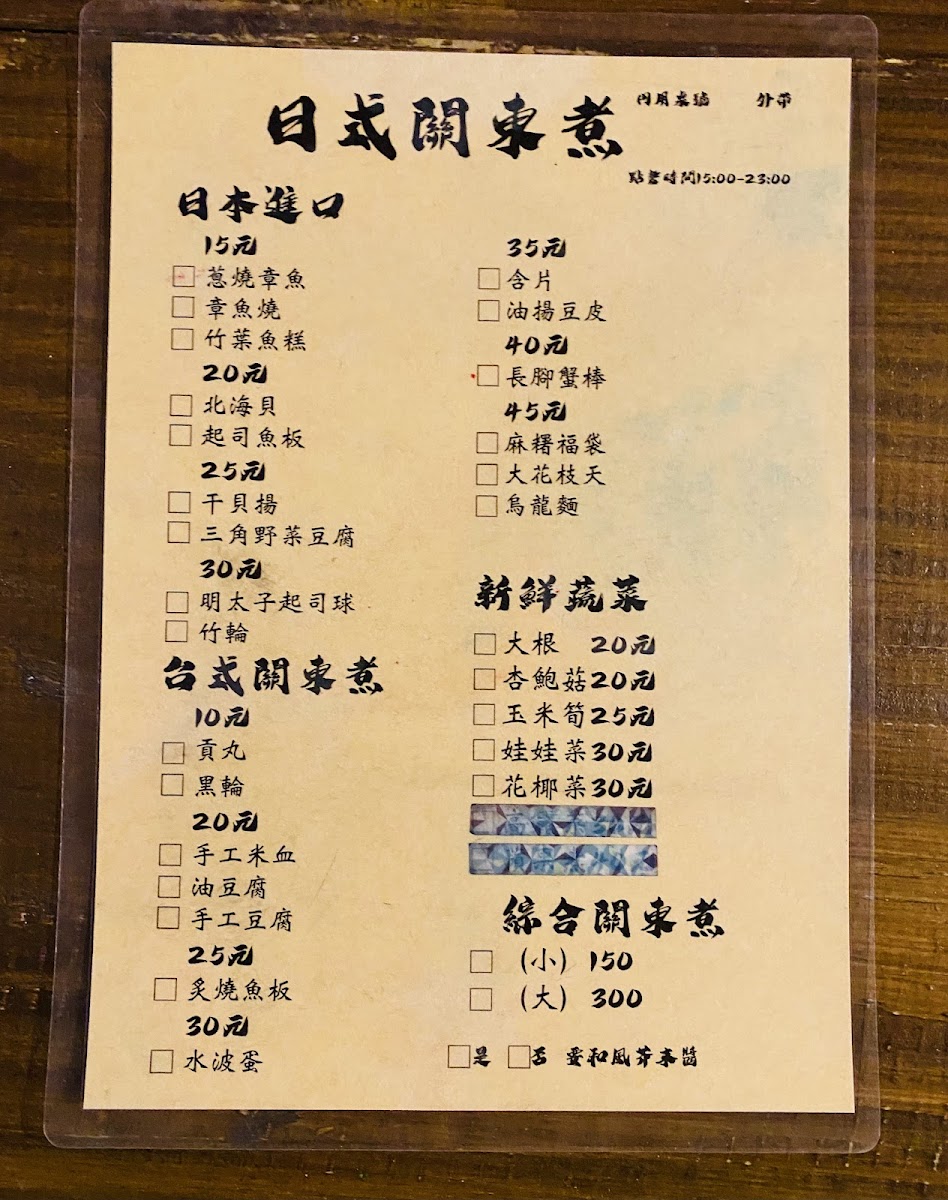 日式關東煮
內用桌號 外帶
點餐時間15:00-23:00
日本進口
15元
□蔥燒章魚
□章魚燒
□竹葉魚糕
20元
□北海貝
□起司魚板
25元
□干貝揚
□三角野菜豆腐
30元
□明太子起司球
□竹輪
台式關東煮
10元
□貢丸
□黑輪
20元
□手工米血
□油豆腐
□手工豆腐
25元
□炙燒魚板
30元
□水波蛋
35元
□含片
□油揚豆皮
40元
□長腳蟹棒
45元
□麻糬福袋
□大花枝天
□烏龍麵
新鮮蔬菜
□大根 20元
□杏鮑菇20元
□玉米筍25元
□娃娃菜30元
□花椰菜30元
綜合關東煮
□ (小) 150
□ (大) 300
□是 □否 要和風芥末醬